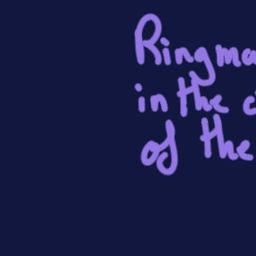 Ringma
in the c
of the